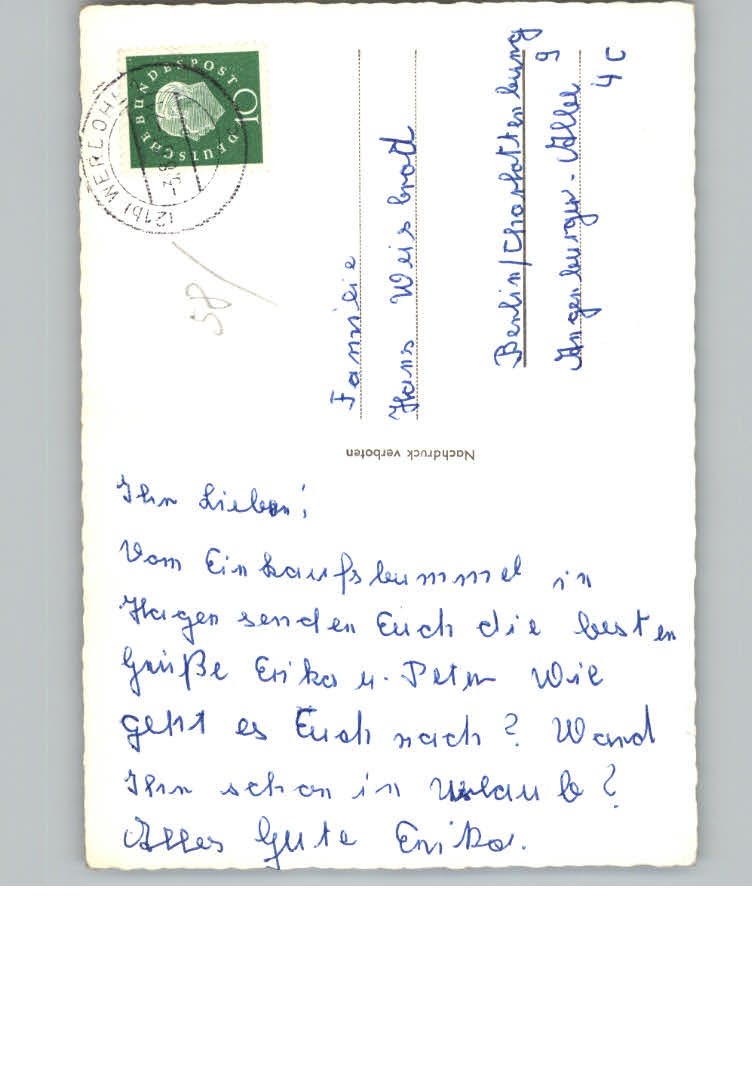 Ihr Lieben!
Vom Einkaufsbummel in
Hagen senden Euch die besten
Grüße Erika u. Peter Wie
geht es Euch noch? Ward
Ihr schon in Urlaub?
Alles Gute Erika.
Nachdruck verboten
Familie
Hans Weisbrodt
Berlin/Charlottenburg
9
Angerburger-Allee
4 C
58/
DEUTSCHE BUNDESPOST
10
(21b) WERDOHL